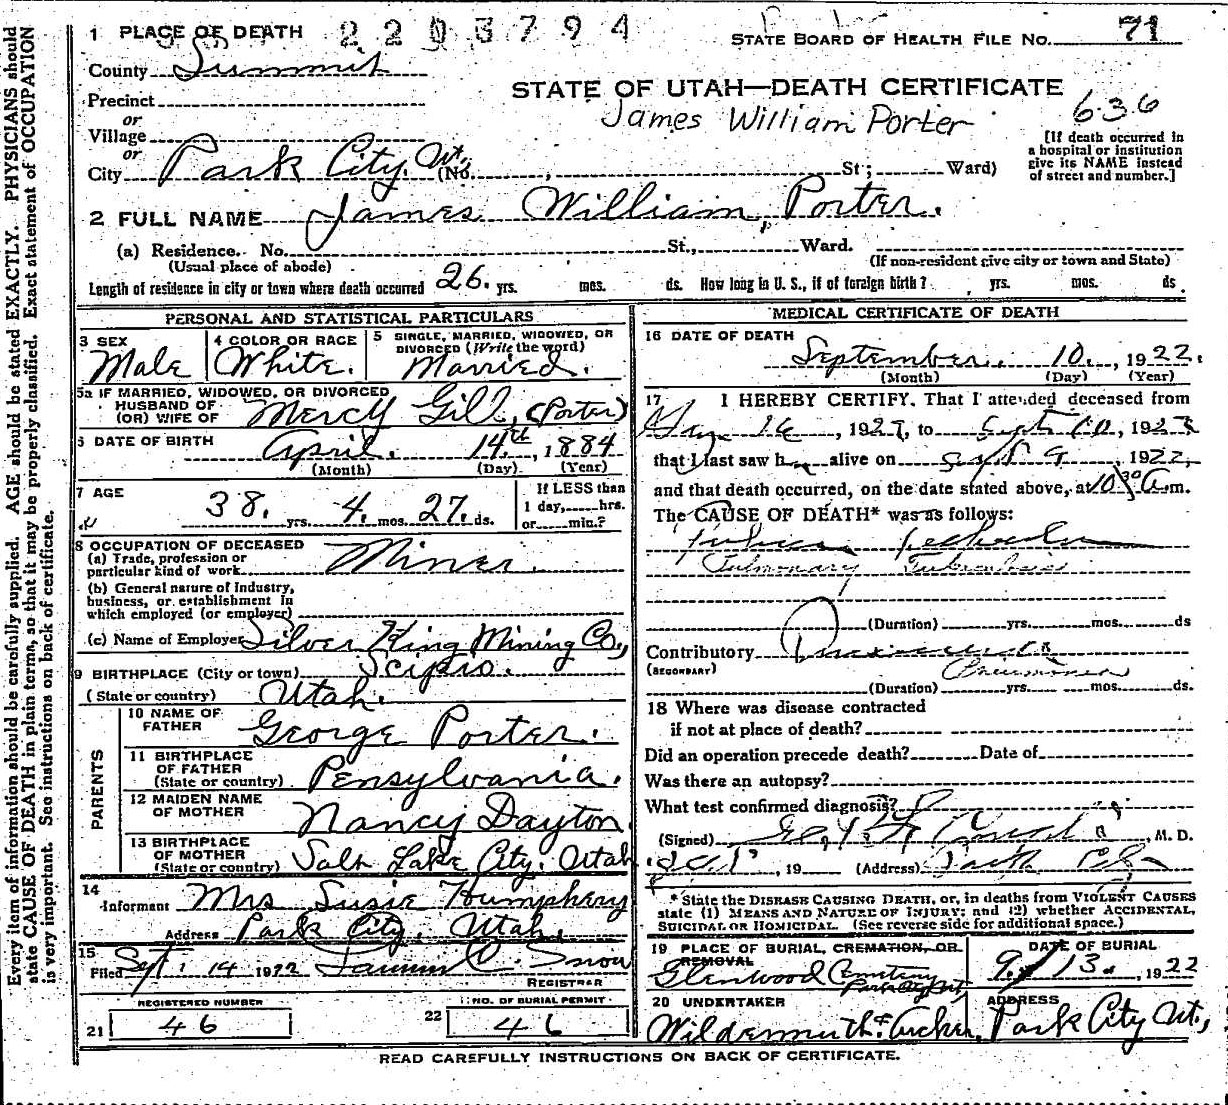 Every item of information should be carefully supplied. AGE should be stated EXACTLY. PHYSICIANS should
state CAUSE OF DEATH in plain terms, so that it may be properly classified. Exact statement of OCCUPATION
is very important. See instructions on back of certificate.
2203794
1 PLACE OF DEATH
STATE BOARD OF HEALTH FILE No. 71
County Summit
STATE OF UTAH—DEATH CERTIFICATE
Precinct
James William Porter
636
or
Village
or
City Park City, Ut. (No. , St; Ward)
[If death occurred in
a hospital or institution
give its NAME instead
of street and number.]
2 FULL NAME James William Porter.
(a) Residence. No. St., Ward.
(Usual place of abode) (If non-resident give city or town and State)
Length of residence in city or town where death occurred 26. yrs. mos. ds. How long in U. S., if of foreign birth? yrs. mos. ds.
PERSONAL AND STATISTICAL PARTICULARS
3 SEX
Male
4 COLOR OR RACE
White.
5 SINGLE, MARRIED, WIDOWED, OR
DIVORCED (Write the word)
Married.
5a IF MARRIED, WIDOWED, OR DIVORCED
HUSBAND OF
(OR) WIFE OF Mercy Gill, (Porter)
6 DATE OF BIRTH April. 14th, 1884
(Month) (Day) (Year)
7 AGE
38. yrs. 4. mos. 27. ds.
If LESS than
1 day, hrs.
or min.?
8 OCCUPATION OF DECEASED
(a) Trade, profession or
particular kind of work Miner.
(b) General nature of industry,
business, or establishment in
which employed (or employer)
(c) Name of Employer Silver King Mining Co.,
9 BIRTHPLACE (City or town) Scipio.
(State or country) Utah.
PARENTS
10 NAME OF
FATHER George Porter.
11 BIRTHPLACE
OF FATHER
(State or country) Pensylvania.
12 MAIDEN NAME
OF MOTHER Nancy Dayton.
13 BIRTHPLACE
OF MOTHER
(State or country) Salt Lake City, Utah
14
Informant Mrs Susie Humphery
Address Park City, Utah.
15
Filed Sept. 14 1922 C. Snow
REGISTRAR
REGISTERED NUMBER
21 46
NO. OF BURIAL PERMIT
22 46
MEDICAL CERTIFICATE OF DEATH
16 DATE OF DEATH
September. 10., 1922.
(Month) (Day) (Year)
17 I HEREBY CERTIFY, That I attended deceased from
, 192 , to Sept 10, 192
that I last saw h alive on Sept 9, 1922,
and that death occurred, on the date stated above, at 10 30 a.m.
The CAUSE OF DEATH* was as follows:
Pulmonary Tuberculosis
(Duration) yrs. mos. ds
Contributory
(SECONDARY) Pneumonia
(Duration) yrs. mos. ds.
18 Where was disease contracted
if not at place of death?
Did an operation precede death? Date of
Was there an autopsy?
What test confirmed diagnosis?
(Signed) , M. D.
, 19 (Address) Park City
* State the DISEASE CAUSING DEATH, or, in deaths from VIOLENT CAUSES
state (1) MEANS AND NATURE OF INJURY; and (2) whether ACCIDENTAL,
SUICIDAL OR HOMICIDAL. (See reverse side for additional space.)
19 PLACE OF BURIAL, CREMATION, OR
REMOVAL
Glenwood Cemetery
Park City Ut.
DATE OF BURIAL
9/13., 1922
20 UNDERTAKER
Wildermuth & Archer.
ADDRESS
Park City Ut.,
READ CAREFULLY INSTRUCTIONS ON BACK OF CERTIFICATE.